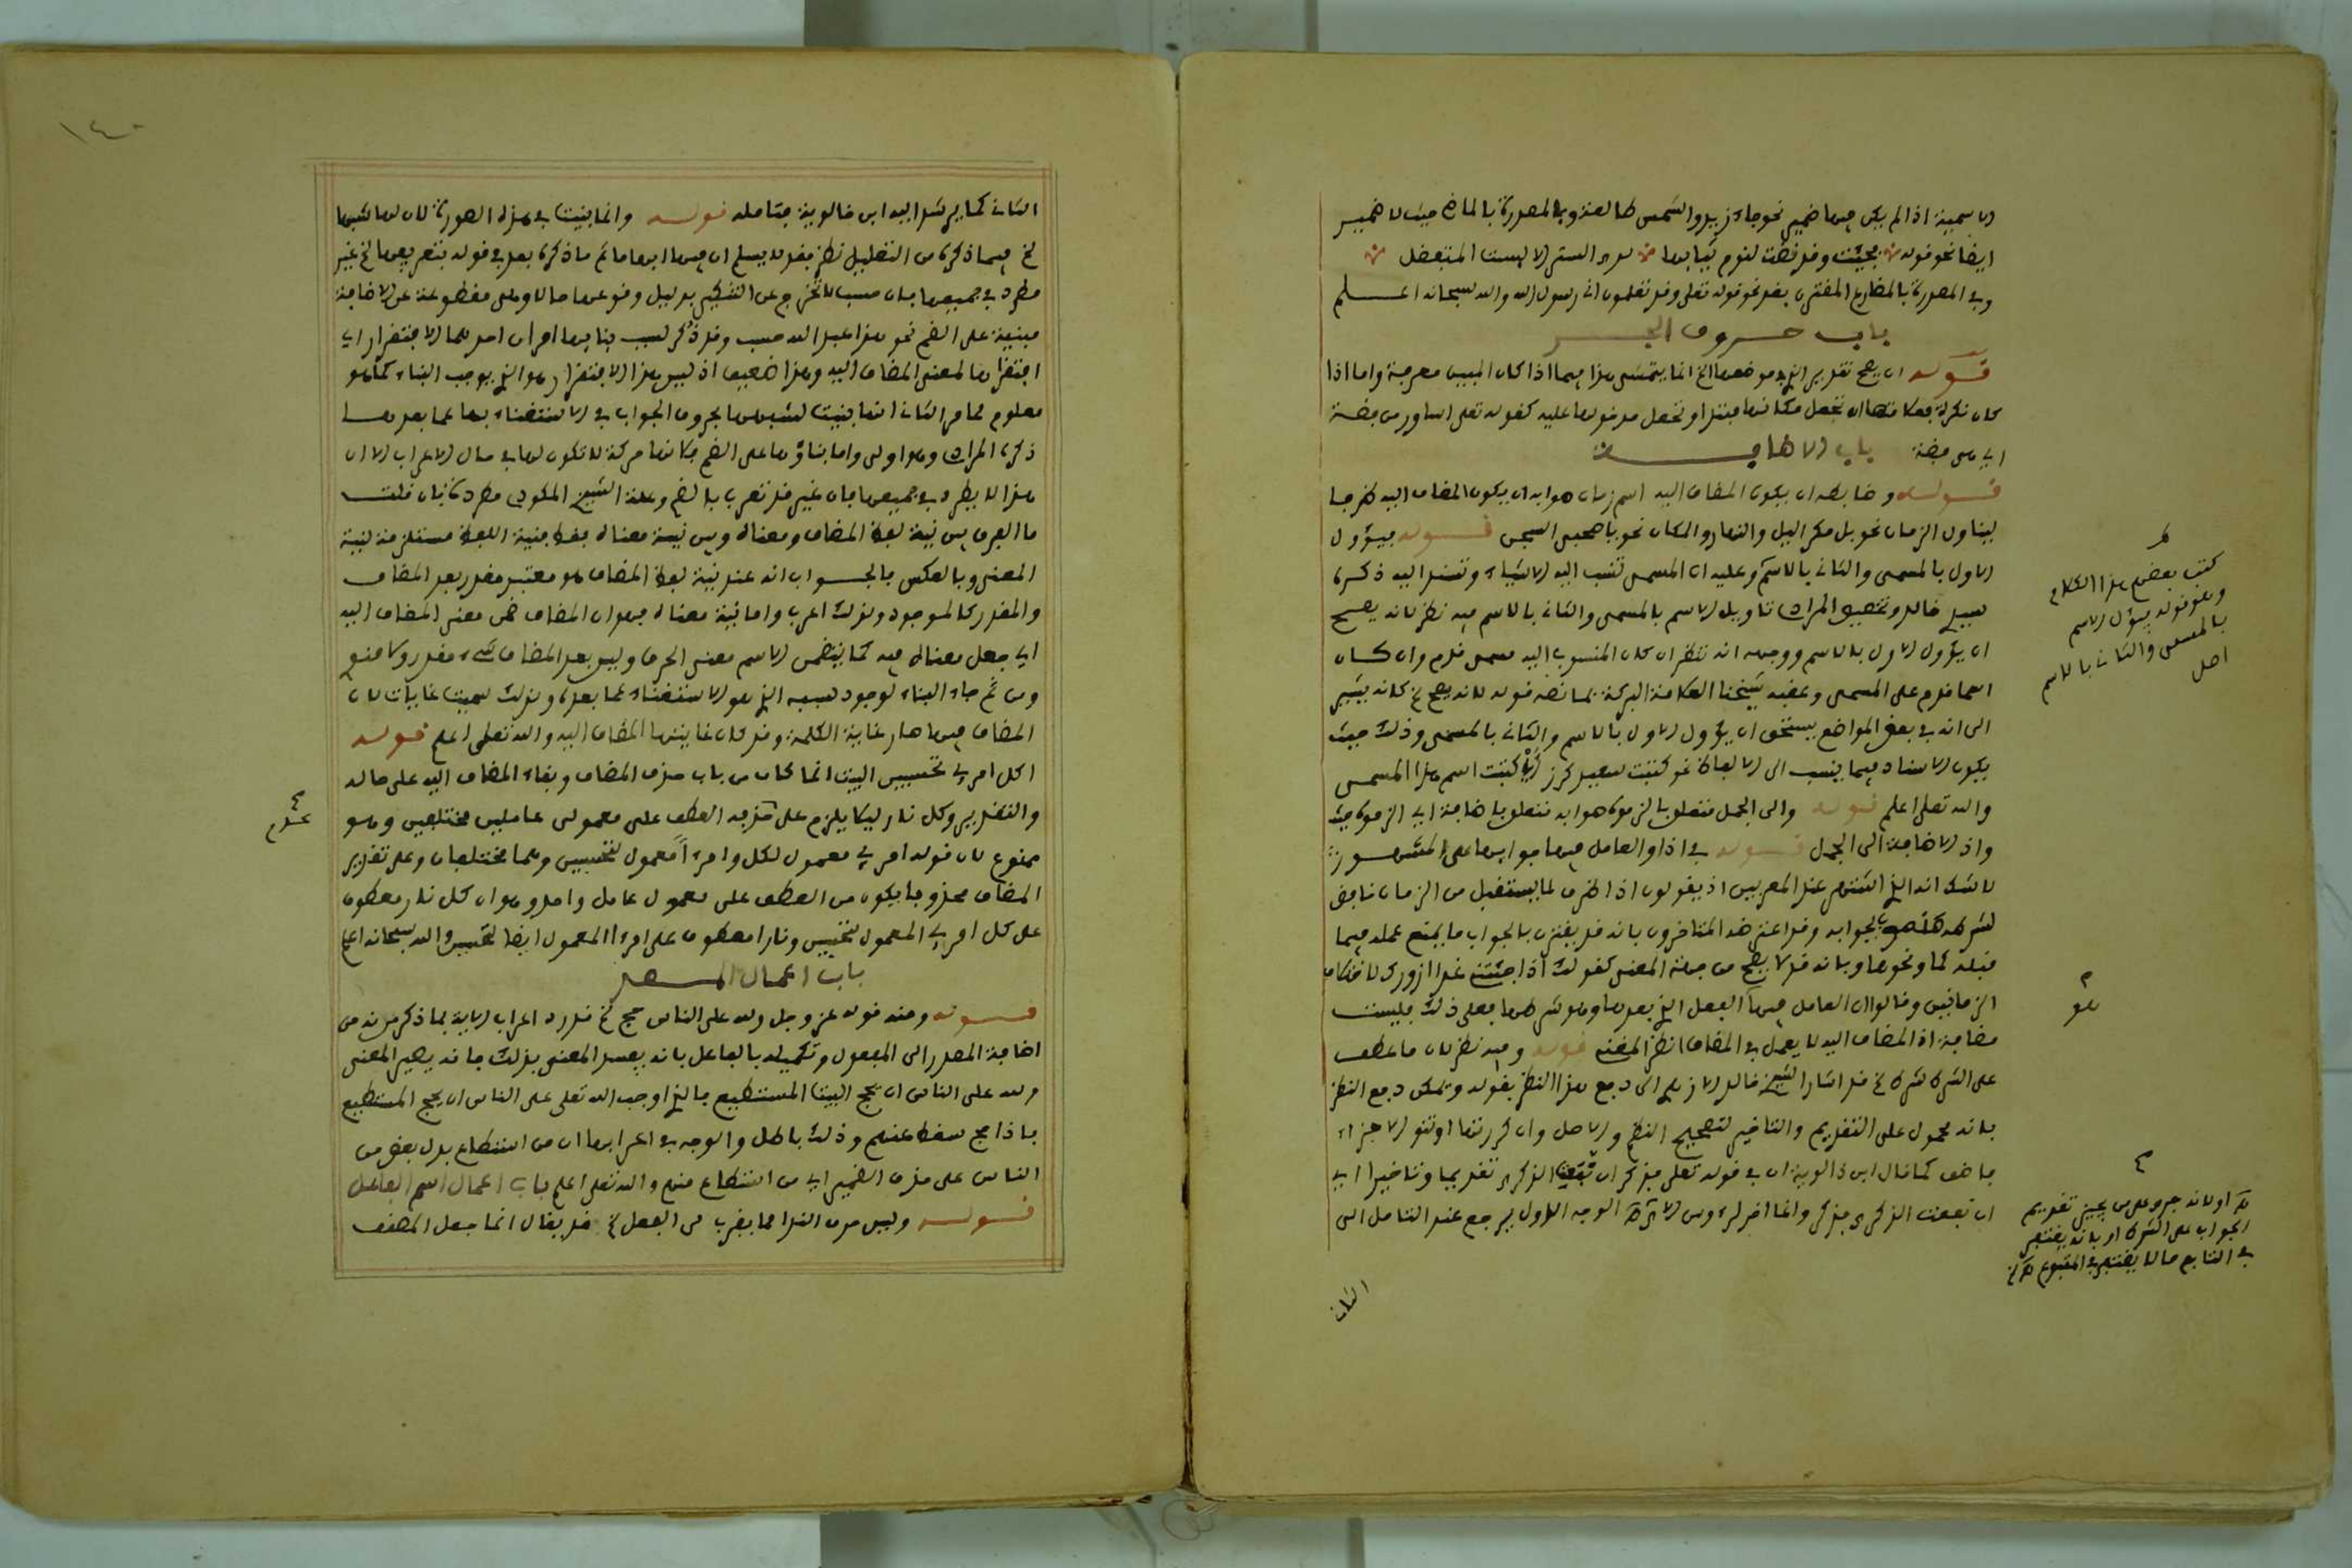 الاسمية اذا لم يكن فيها ضمير نحو جاء زيد والشمس طالعة وبالمصدرة بالماضي حيث لا ضمير
ايضا نحو قوله فجئت وقد نضت لنوم ثيابها لدى الستر الا لبسة المتفضل
وفي المصدرة بالمضارع المقترن بقد نحو قوله تعلى وقد تعلمون اني رسول الله والله سبحانه اعلم
باب حروف الجر
قوله ان يصح تقدير الذي موضعها الخ انما يتمشى هذا فيما اذا كان المبين معرفة واما اذا
كان نكرة فعلامتها ان تجعل مكانها مبتدا وتجعل مدخولها عليه كقوله تعلى اساور من فضة
اي هي فضة باب الاضافة
قوله وضابطه ان يكون المضاف اليه اسم زمان صوابه ان يكون المضاف اليه ظرفا
ليتناول الزمان نحو بل مكر اليل والنهار والمكان نحو يا صحبي السجن قوله فيؤول
الاول بالمسمى والثاني بالاسم وعليه ان المسمى تنسب اليه الاشياء وتسند اليه ذكره
سيبويه خالد وتخصيص المراد تاويل الاسم بالمسمى والثاني بالاسم فيه نظر لانه يصح
ان يؤول الاول بالاسم ووجهه انه تنظر ان كان المنسوب اليه مسمى قدم وان كان
اسما قدم على المسمى وعقبه شيخنا العلامة البركة بما نصه قوله لانه يصح الخ كانه يشير
الى انه في بعض المواضع يستحق ان يؤول الاول بالاسم والثاني بالمسمى وذلك حيث
يكون الاسناد فيما ينسب الى الالفاظ نحو كتبت سعيد كرز اي كتبت اسم هذا المسمى
والله تعلى اعلم قوله والى الجمل متعلق بالزموا صوابه متعلق باضافة اي الزموا حيث
واذ الاضافة الى الجمل قوله في اذا والعامل فيها جوابها على المشهور
لا شك انه الذي اشتهر عند المعربين اذ يقولون اذا ظرف لما يستقبل من الزمان خافض
لشرطه منصوب بجوابه وقد اعترضه المتاخرون بانه قد يقترن بالجواب ما يمنع عمله فيما
قبله كما ونحوها وبانه قد لا يصح من جهة المعنى كقولك اذا جئتني غدا ازورك لاختلاف
الزمانين وقالوا ان العامل فيها الفعل الذي بعدها وهو شرطها فعلى ذلك فليست
مضافة اذ المضاف اليه لا يعمل في المضاف انظر المغني قوله وفيه نظر لان ما عطف
على الشرط شرط الخ قد اشار الشيخ خالد الازهري الى دفع هذا النظر بقوله ويمكن دفع النظر
بانه محمول على التقديم والتاخير لتصحيح النظم والاصل وان كررتها وتنو الاجزاء
فاضف كما قال ابن خالوية ان في قوله تعلى فذكر ان نفعت الذكرى تقديما وتاخيرا اي
ان نفعت الذكرى فذكر وانما اخر لرءوس الاية الوجه الاول يرجع عند التامل الى
الثاني
كتب بعضهم هذا الكلام
وهو قوله يؤول الاسم
بالمسمى والثاني بالاسم
اصل
هو
اولانه جرى على من يجيز تقديم
الجواب على الشرط او بانه يغتفر
في التابع ما لا يغتفر في المتبوع
١٤٠
الثاني كما يرشد اليه ابن خالوية فتامله قوله وانما بنيت في هذه الصورة لان لها شبها
الخ فيما ذكره من التعليل نظر فقد لا يسلم ان فيها ابهاما ثم ما ذكره بعد في قوله بتعريفها الخ غير
مطرد في جميعها فان حسب لا تخرج عن التنكير بدليل وقوعها حالا وهي مقطوعة عن الاضافة
مبنية على الضم نحو هذا عبد الله حسب وقد ذكر لسبب بنايها امران احدهما الافتقار اي
افتقارها لمعنى المضاف اليه وهذا ضعيف اذ ليس هذا الافتقار هو الذي يوجب البناء كما هو
معلوم مما مر الثاني انها بنيت لشبهها بحروف الجواب في الاستغناء بها عما بعدها
ذكره المرادي وهو اولى واما بناؤها على الضم فلانها حركة لا تكون لها في حال الاعراب الا ان
هذا لا يطرد في جميعها فان غير قد تعرب بالضم وعلة الشيخ المكودي مطردة فان قلت
ما الفرق بين نية لفظ المضاف ومعناه وبين نية معناه فقط فنية اللفظ مستلزمة لنية
المعنى وبالعكس فالجواب انه عند نية لفظ المضاف هو معتبر مقدر بعد المضاف
والمقدر كالموجود ولذلك اعرب واما نية معناه فهو ان المضاف ضمن معنى المضاف اليه
اي جعل معناه فيه كما يتضمن الاسم معنى الحرف وليس بعد المضاف شيء مقدر ولا منوي
ومن ثم جاء البناء لوجود سببه الذي هو الاستغناء عما بعده ولذلك سميت غايات لان
المضاف فيها صار غاية الكلمة وقد كان غايتها المضاف اليه والله تعلى اعلم قوله
اكل امرئ تحسبين البيت انما كان من باب حذف المضاف وبقاء المضاف اليه على حاله
والتقدير وكل نار ليلا يلزم على حذفه العطف على معمولي عاملين مختلفين وهو
ممنوع لان قوله امرئ معمول لكل وامرءا معمول لتحسبين وهما مختلفان وعلى تقدير
المضاف محذوفا يكون من العطف على معمول عامل واحد وهو ان كل نار معطوف
على كل امرئ المعمول لتحسبين ونارا معطوف على امرءا المعمول ايضا لتحسبين والله سبحانه اعلم
باب اعمال المصدر
قوله ومنه قوله عز وجل ولله على الناس حج الخ قد رد اعراب الاية بما ذكر من انه من
اضافة المصدر الى المفعول وتكميله بالفاعل بانه يفسد المعنى بذلك فانه يصير المعنى
ولله على الناس ان يحج البيت المستطيع فالذي اوجب الله تعلى على الناس ان يحج المستطيع
فاذا حج سقط عنهم وذلك باطل والوجه في اعرابها ان من استطاع بدل بعض من
الناس على حذف الضمير اي من استطاع منهم والله تعلى اعلم باب اعمال اسم الفاعل
قوله وليس حرف الندا مما يقرب من الفعل الخ قد يقال انما جعل المصنف